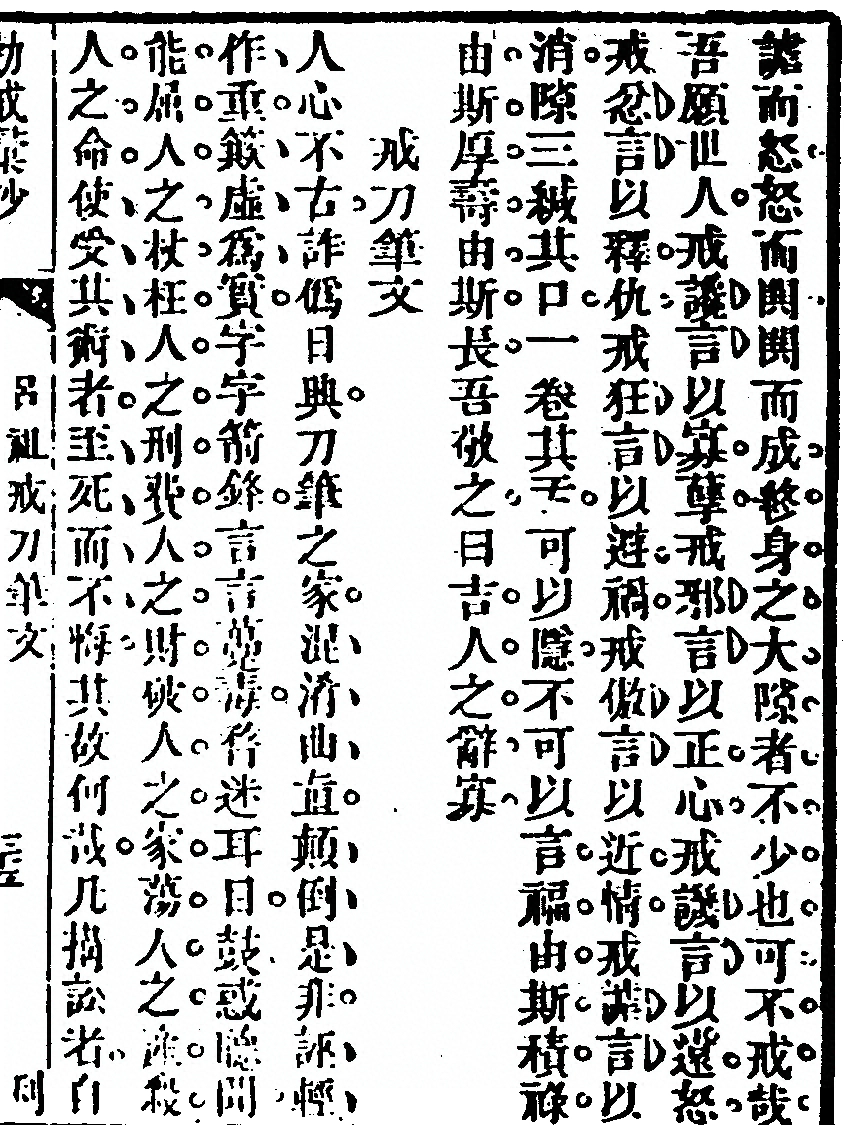 謔而怒怒而鬬鬬而成終身之大隙者不少也可不戒哉
吾願世人戒讒言以寡孽戒邪言以正心戒譏言以遠怒
戒忿言以釋仇戒狂言以避禍戒傲言以近情戒謹言以
消隙三緘其口一卷其舌可以隱不可以言福由斯積祿
由斯厚壽由斯長吾敬之曰吉人之辭寡
戒刀筆文
人心不古詐偽日興刀筆之家混淆曲直顛倒是非誣輕
作重飾虛為實字字箭鋒言言毒奔迷耳目鼓惑聽聞
能屈人之杖枉人之刑費人之財破人之家蕩人之產殺
人之命使受其術者至死而不悔其故何哉凡搆訟者自
呂祖戒刀筆文